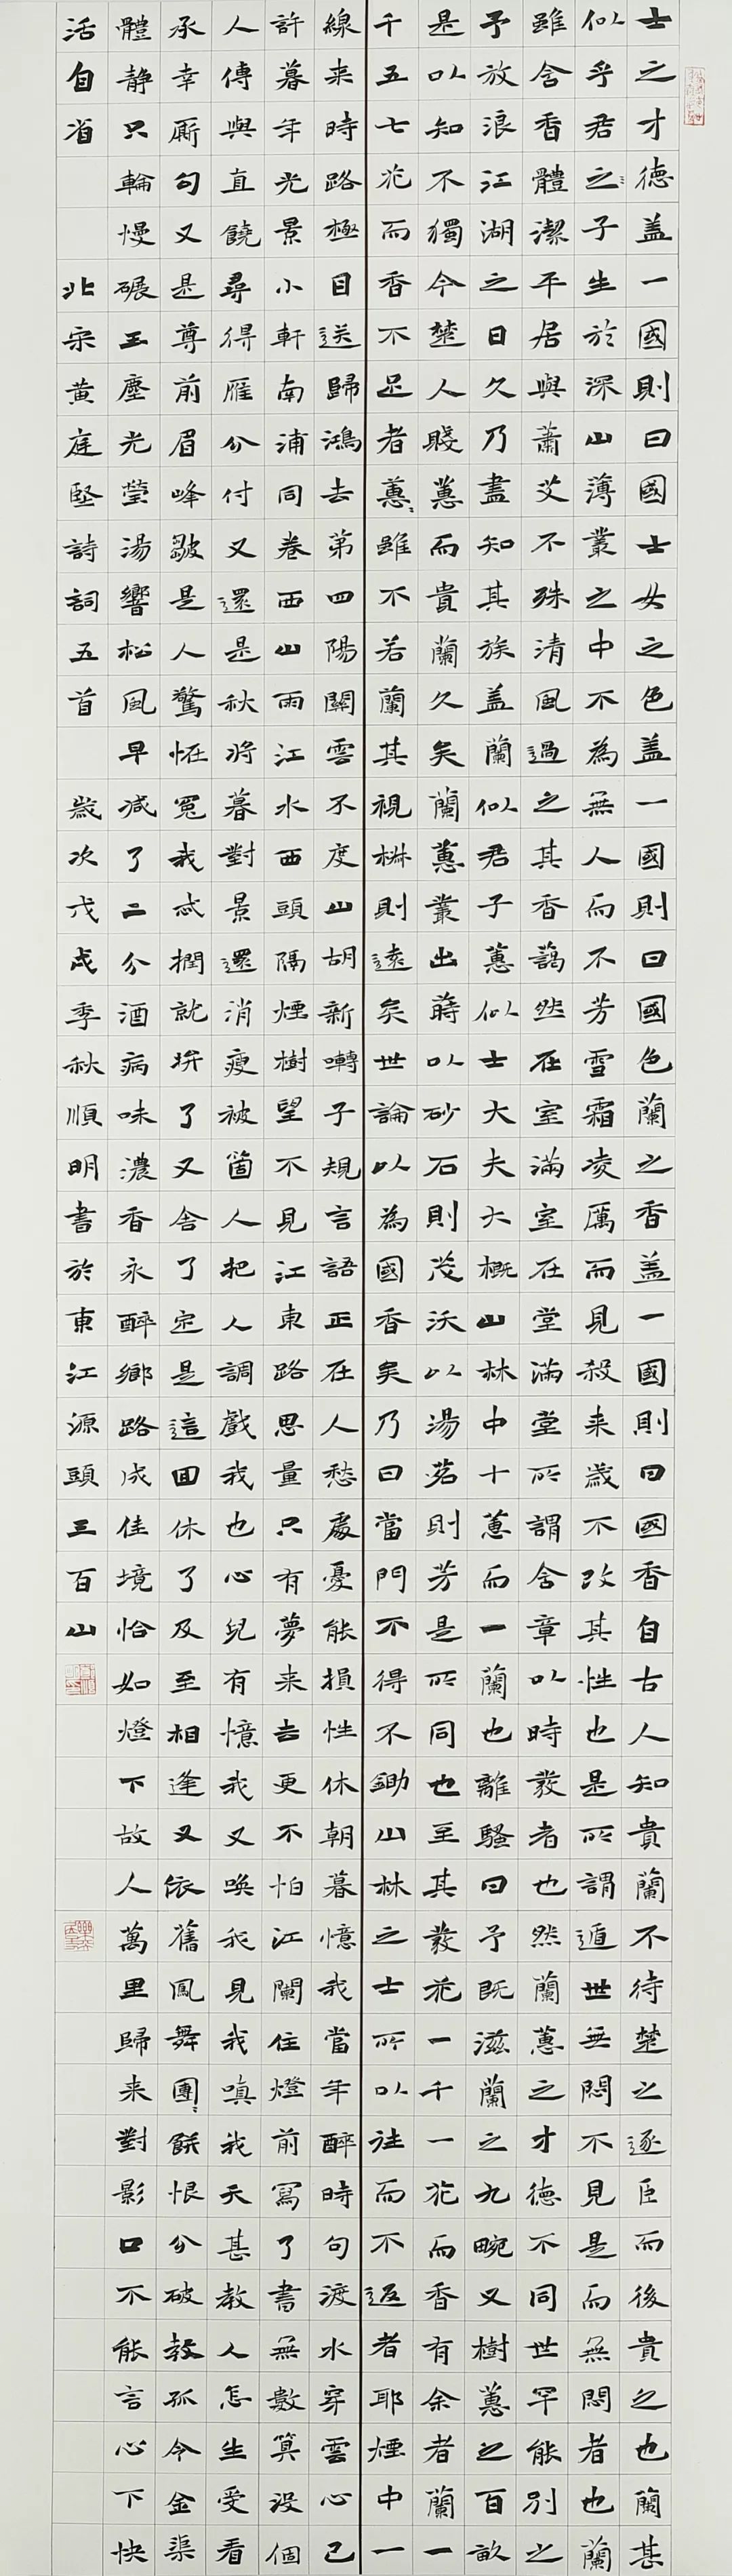 士之才德盖一國則曰國士女之色盖一國則曰國色蘭之香盖一國則曰國香自古人知貴蘭不待楚之逐臣而後貴之也蘭甚
似乎君之子生於深山薄叢之中不為無人而不芳雪霜凌厲而見殺来歲不改其性也是所謂遁世無悶不見是而無悶者也蘭
雖含香體潔平居與蕭艾不殊清風過之其香藹然在室滿室在堂滿堂所謂含章以時發者也然蘭蕙之才德不同世罕能別之
予放浪江湖之日久乃盡知其族盖蘭似君子蕙似士大夫大概山林中十蕙而一蘭也離騷曰予既滋蘭之九畹又樹蕙之百畝
是以知不獨今楚人賤蕙而貴蘭久矣蘭蕙叢出蒔以砂石則茂沃以湯茗則芳是所同也至其發花一千一花而香有余者蘭一
千五七花而香不足者蕙〻雖不若蘭其視椒則遠矣世論以為國香矣乃曰當門不得不鋤山林之士所以往而不返者耶煙中一
線来時路極目送歸鴻去第四陽關雲不度山胡新囀子規言語正在人愁處憂能損性休朝暮憶我當年醉時句渡水穿雲心已
許暮年光景小軒南浦同卷西山雨江水西頭隔煙樹望不見江東路思量只有夢来去更不怕江闌住燈前寫了書無數算没個
人傳與直饒尋得雁分付又還是秋將暮對景還消瘦被箇人把人調戲我也心兒有憶我又唤我見我嗔我天甚教人怎生受看
承幸厮句又是尊前眉峰皺是人驚怪冤我忒撋就拚了又舍了定是這回休了及至相逢又依舊鳳舞團〻餅恨分破教孤令金渠
體静只輪慢碾玉塵光瑩湯響松風早減了二分酒病味濃香永醉鄉路成佳境恰如燈下故人萬里歸来對影口不能言心下快
活自省 北宋黄庭堅詩詞五首 歲次戊戌季秋順明書於東江源頭三百山